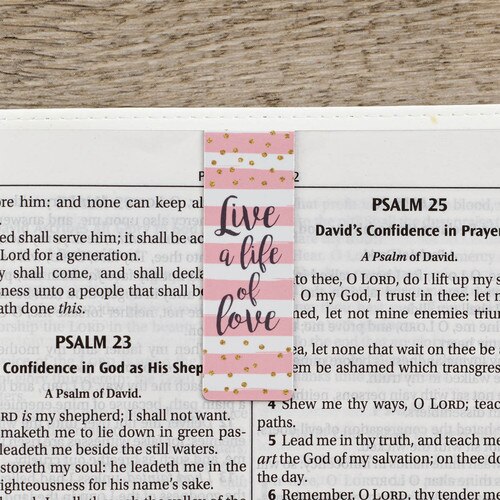 Live
a life
of
love
ore him: and none can keep al
ed shall serve him; it shall be ac
Lord for a generation.
y shall come, and shall decla
sness unto a people that shall b
ath done this.
PSALM 23
Confidence in God as His Shep
A Psalm of David.
ORD is my shepherd; I shall not want.
maketh me to lie down in green pas-
leadeth me beside the still waters.
estoreth my soul: he leadeth me in the
righteousness for his name's sake.
PSALM 25
David's Confidence in Prayer
A Psalm of David.
to thee, O LORD, do I lift up my s
O my God, I trust in thee: let m
med, let not mine enemies trium
ea, let none that wait on thee be
be ashamed which transgress
4 Shew me thy ways, O LORD; teach
paths.
5 Lead me in thy truth, and teach me
art the God of my salvation; on thee do
the day.
6 Remember, O LORD, thy tender m